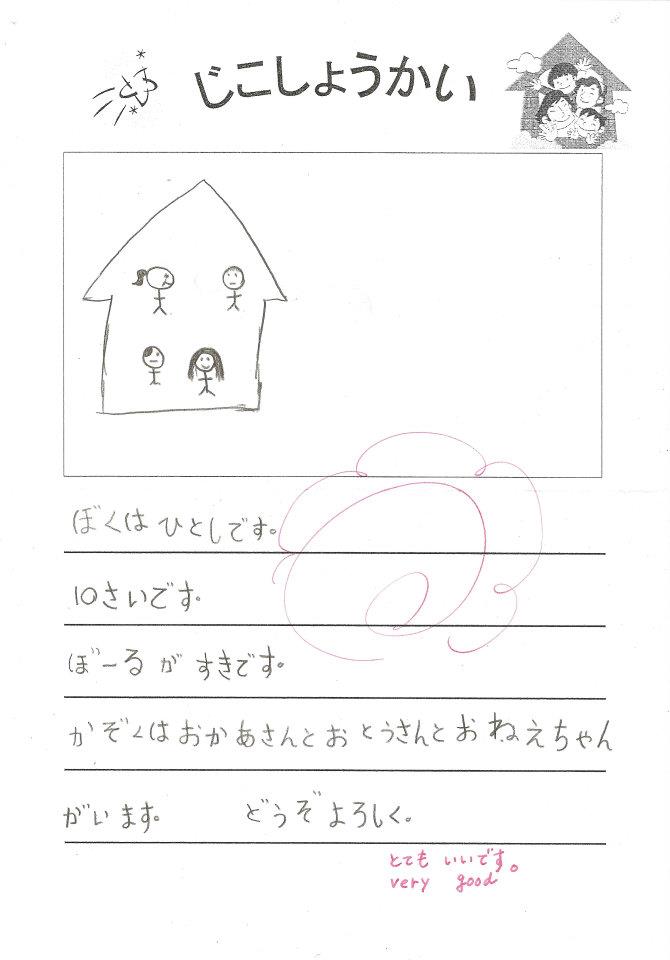 じこしょうかい
ぼくは ひとしです。
10さいです。
ぼーる が すきです。
かぞくは おかあさんと おとうさんと おねえちゃん
がいます。 どうぞ よろしく。
とても いいです。
very good